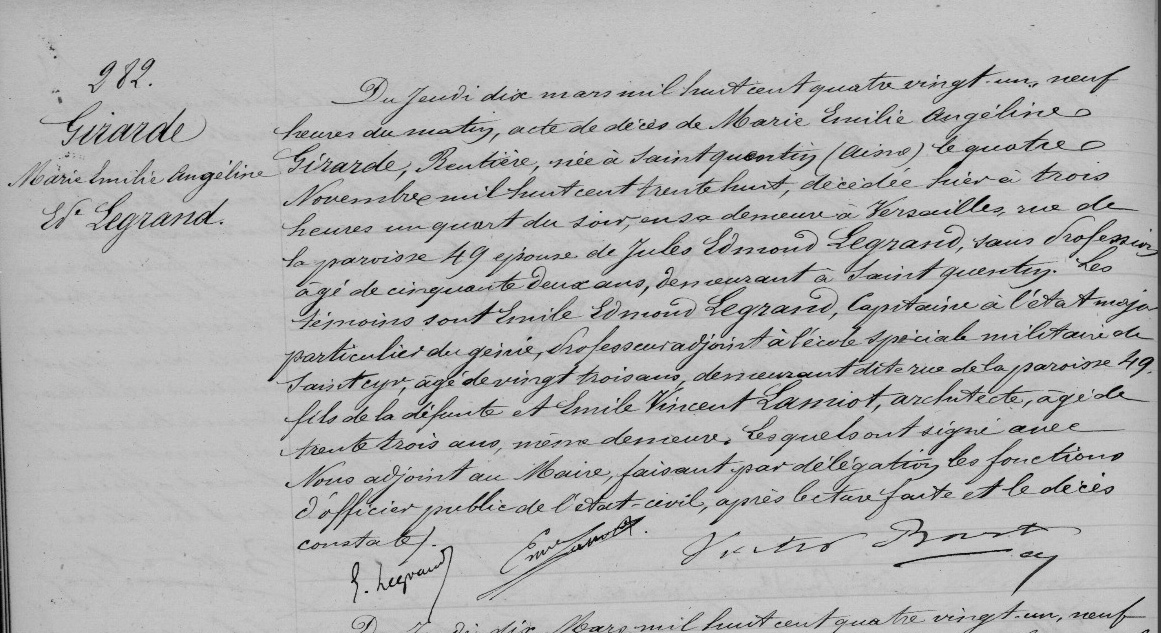 282.
Girarde
Marie Emilie Angéline
Ede Legrand.
Du Jeudi dix mars mil huit cent quatre vingt-un, neuf
heures du matin, acte de décès de Marie Emilie Angéline
Girarde, Rentière, née à Saint quentin (Aisne) le quatre
Novembre mil huit cent trente huit, décédée hier à trois
heures un quart du soir, en sa demeure à Versailles, rue de
la paroisse 49 épouse de Jules Edmond Legrand, sans Profession
âgé de cinquante deux ans, demeurant à Saint quentin. Les
témoins sont Emile Edmond Legrand, Capitaine à l'état major
particulier du génie, Professeur adjoint à l'école spéciale militaire de
Saint cyr, âgé de vingt trois ans, demeurant dite rue de la paroisse 49.
fils de la défunte et Emile Vincent Lamiot, architecte, âgé de
trente trois ans, même demeure. Lesquels ont signé avec
Nous adjoint au Maire, faisant par délégation les fonctions
d'officier public de l'état-civil, après lecture faite et le décès
constaté).
E. Legrand
Emile Lamiot
Du Jeudi dix Mars mil huit cent quatre vingt-un, neuf